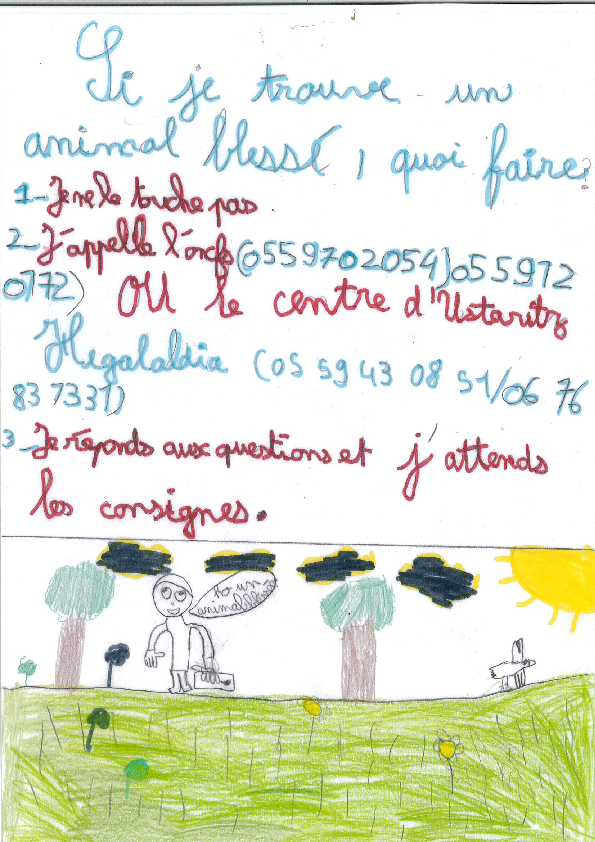 Si je trouve un
animal blessé, quoi faire?
1-Je ne le touche pas
2-J'appelle l'oncfs(0559702054)055912
0772) OU le centre d'Ustaritz
Hegalaldia (05 59 43 08 51/06 76
83 7331)
3-Je réponds aux questions et j'attends
les consignes.
un
animal